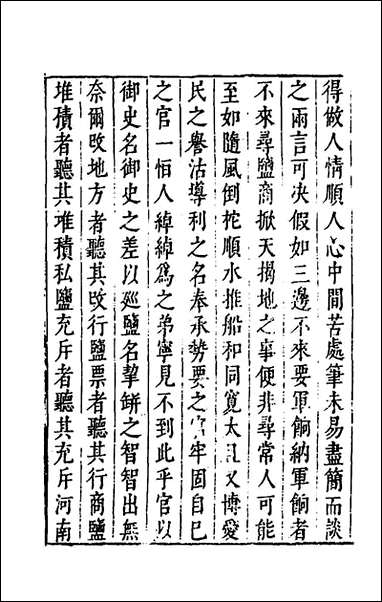 得做人情順人心中間苦處筆未易盡簡而談
之兩言可决假如三邊不來要軍餉納軍餉者
不來尋鹽商掀天揭地之事便非尋常人可能
至如隨風倒柁順水推船和同寬大且又博愛
民之譽沽導利之名奉承勢要之官牢固自巳
之官一怕人綽綽爲之弟寧見不到此乎官以
御史名御史之差以廵鹽名挈缾之智智出無
奈爾改地方者聽其改行鹽票者聽其行商鹽
堆積者聽其堆積私鹽充斥者聽其充斥河南